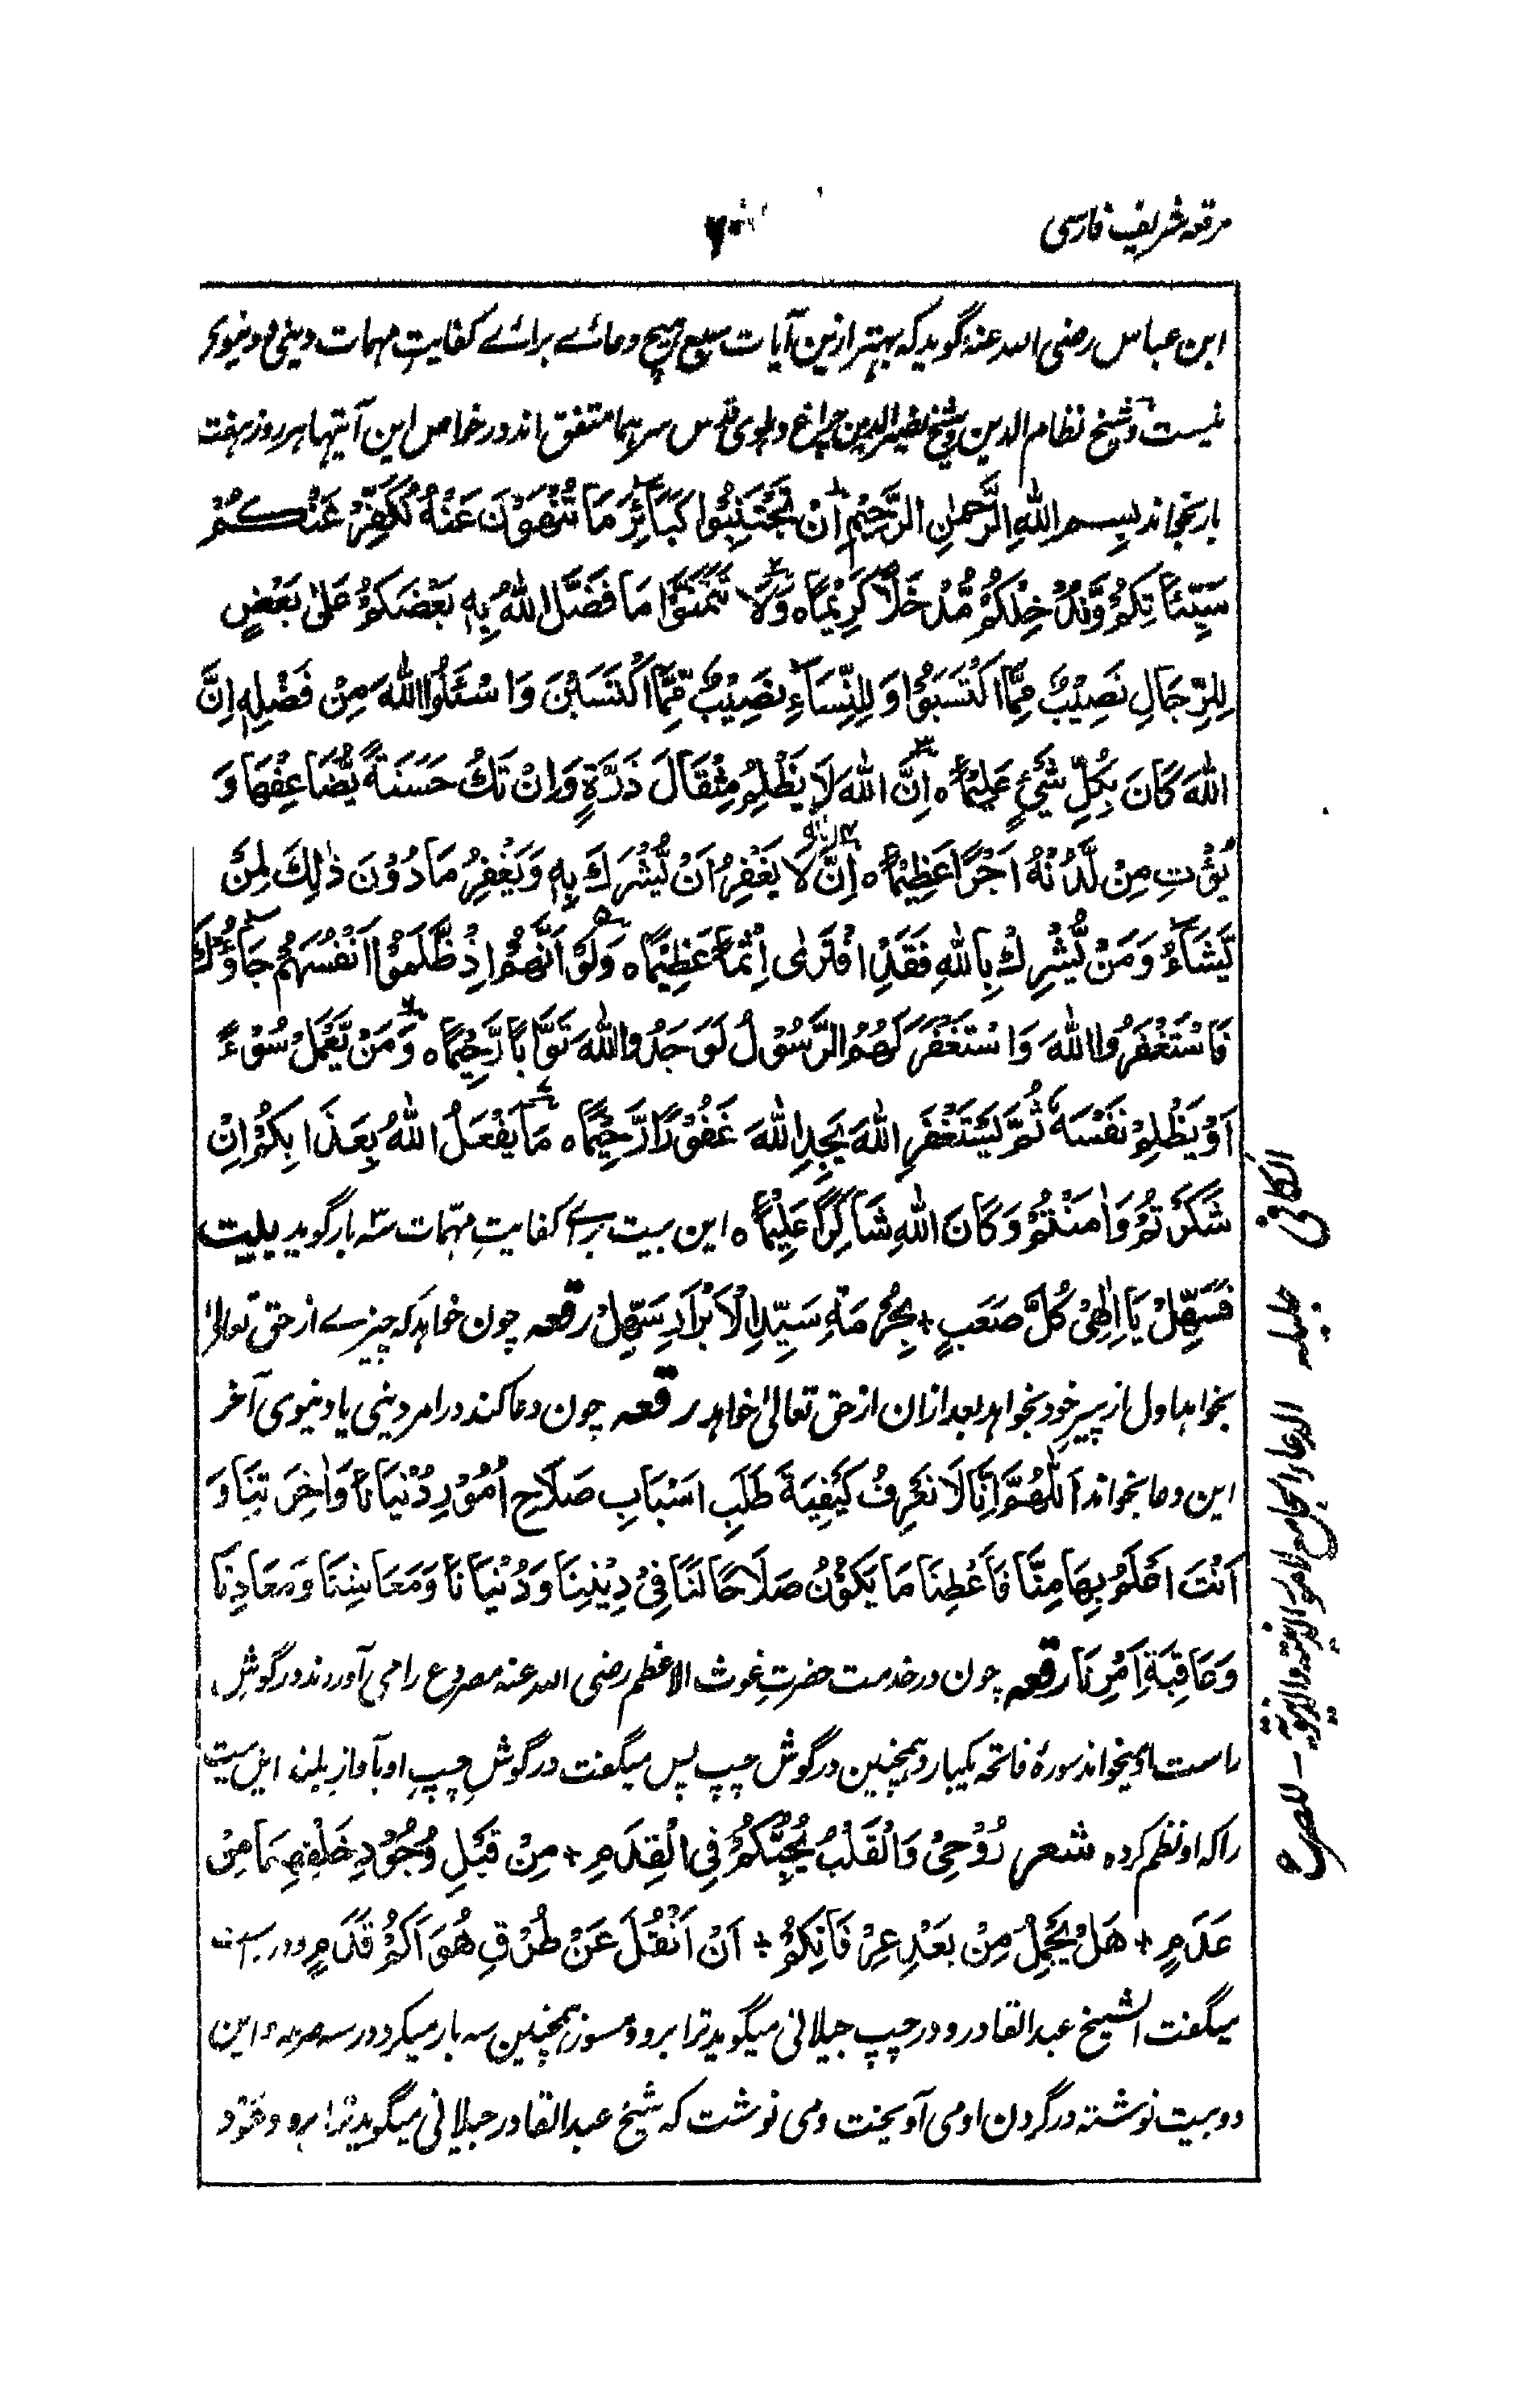 مرقعہ شریف فارسی
ابن عباس رضی اللہ عنہ گوید کہ بہتر ازین آیات سبع ہیچ دعائے برائے کفایتِ مہمات دینی و دنیوی
نیست و شیخ نظام الدین و شیخ نصیر الدین چراغ دہلوی قدس سرہما متفق اند در خواص این آیتہا ہر روز ہفت
بار بخواند بِسمِ اللهِ الرَّحمٰنِ الرَّحِيْمِ اِنْ تَجْتَنِبُوْا كَبَآئِرَ مَا تُنْهَوْنَ عَنْهُ نُكَفِّرْ عَنْكُمْ
سَيِّئَاتِكُمْ وَنُدْخِلْكُمْ مُّدْخَلًا كَرِيْمًا ه وَلَا تَتَمَنَّوْا مَا فَضَّلَ اللهُ بِهٖ بَعْضَكُمْ عَلٰى بَعْضٍ
لِلرِّجَالِ نَصِيْبٌ مِّمَّا اكْتَسَبُوْا وَلِلنِّسَآءِ نَصِيْبٌ مِّمَّا اكْتَسَبْنَ وَاسْئَلُوا اللهَ مِنْ فَضْلِهٖ اِنَّ
اللهَ كَانَ بِكُلِّ شَيْءٍ عَلِيْمًا ه اِنَّ اللهَ لَا يَظْلِمُ مِثْقَالَ ذَرَّةٍ وَاِنْ تَكُ حَسَنَةً يُّضَاعِفْهَا وَ
يُؤْتِ مِنْ لَّدُنْهُ اَجْرًا عَظِيْمًا ه اِنَّ اللہ لَا يَغْفِرُ اَنْ يُّشْرَكَ بِهٖ وَيَغْفِرُ مَا دُوْنَ ذٰلِكَ لِمَنْ
يَّشَآءُ وَمَنْ يُّشْرِكْ بِاللهِ فَقَدِ افْتَرٰى اِثْمًا عَظِيْمًا ه وَلَوْ اَنَّهُمْ اِذْ ظَّلَمُوْا اَنْفُسَهُمْ جَآؤُكَ
فَاسْتَغْفَرُوا اللهَ وَاسْتَغْفَرَ لَهُمُ الرَّسُوْلُ لَوَجَدُوا اللهَ تَوَّابًا رَّحِيْمًا ه وَمَنْ يَّعْمَلْ سُوْءً
اَوْ يَظْلِمْ نَفْسَهٗ ثُمَّ يَسْتَغْفِرِ اللهَ يَجِدِ اللهَ غَفُوْرًا رَّحِيْمًا ه مَا يَفْعَلُ اللهُ بِعَذَابِكُمْ اِنْ
شَكَرْتُمْ وَاٰمَنْتُمْ وَكَانَ اللهُ شَاكِرًا عَلِيْمًا ه این بیت برائے کفایتِ مہمّات سہ بار گوید بیت
فَسَهِّلْ يَا اِلٰهِيْ كُلَّ صَعْبٍ + بِحُرْمَةِ سَيِّدِ الْاَبْرَارِ سَهِّلْ رقعہ چون خواہد کہ چیزے از حق تعالیٰ
بخواہد اول از پیرِ خود بخواہد بعد ازان از حق تعالیٰ خواہد رقعہ چون دعا کند در امر دینی یا دنیوی آخر
این دعا بخواند اَللّٰهُمَّ اِنَّا لَا نَعْرِفُ كَيْفِيَةَ طَلَبِ اَسْبَابِ صَلَاحِ اُمُوْرِ دُنْيَانَا وَاٰخِرَتِنَا وَ
اَنْتَ اَعْلَمُ بِهَا مِنَّا فَاَعْطِنَا مَا يَكُوْنُ صَلَاحًا لَنَا فِيْ دِيْنِنَا وَدُنْيَانَا وَمَعَاشِنَا وَمَعَادِنَا
وَعَاقِبَةِ اَمْرِنَا رقعہ چون در خدمت حضرتِ غوث الاعظم رضی اللہ عنہ مصروع را می آوردند در گوشِ
راستِ او میخواند سورۂ فاتحہ یکبار و ہمچنین در گوش چپ پس میگفت در گوشِ چپِ او بآواز بلند این بیت
را کہ او نظم کردہ شعر رُوْحِيْ وَالْقَلْبُ يُحِبُّكُمْ فِي الْقِدَمِ + مِنْ قَبْلِ وُجُوْدِ خَلْقِهِمَا مِنْ
عَدَمٍ + هَلْ يَجْمِلُ مِنْ بَعْدِ عِرْفَانِكُمْ + اَنْ اَنْقُلَ عَنْ طُرْقِ هُوَاكُمْ قَدَمٍ و در راست
میگفت الشیخ عبد القادر و در چپ جیلانی میگوید ترا برو و مسوز ہمچنین سہ بار میکرد در سہ صرعہ و این
دو بیت نوشتہ در گردن او می آویخت و می نوشت کہ شیخ عبد القادر جیلانی میگوید ترا برو و مسوز
الکافی جلیلہ الدعاء الجامع لامور الدینیہ والدنیویۃ - للصرع